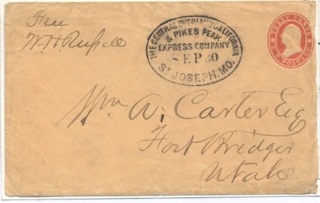 Free
Wm H Russell
THE CENTRAL OVERLAND CALIFORNIA
& PIKES PEAK
EXPRESS COMPANY
SEP 30
ST JOSEPH, MO.
Wm A. Carter Esq
Fort Bridger
Utah